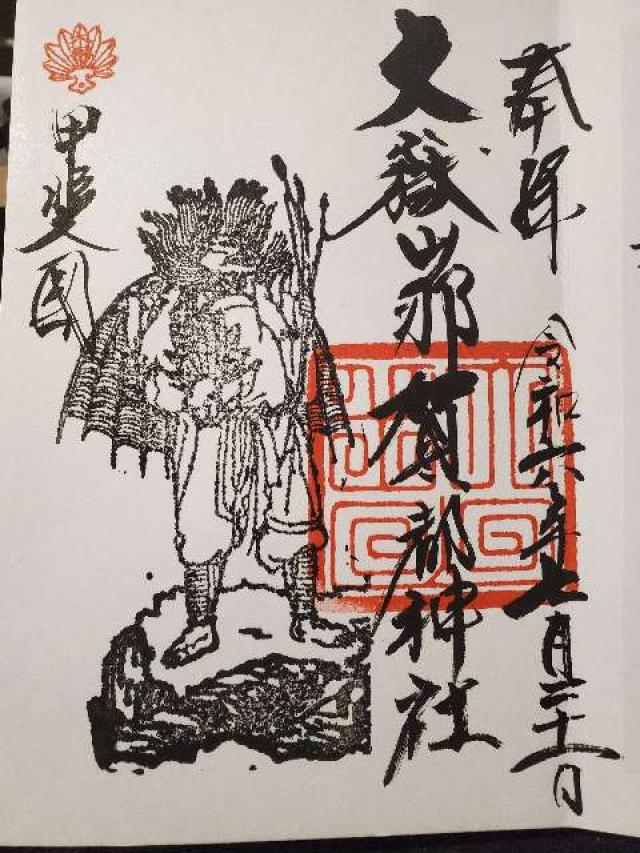 奉拝
令和六年七月二十一日
大嶽山那賀都神社
甲斐国